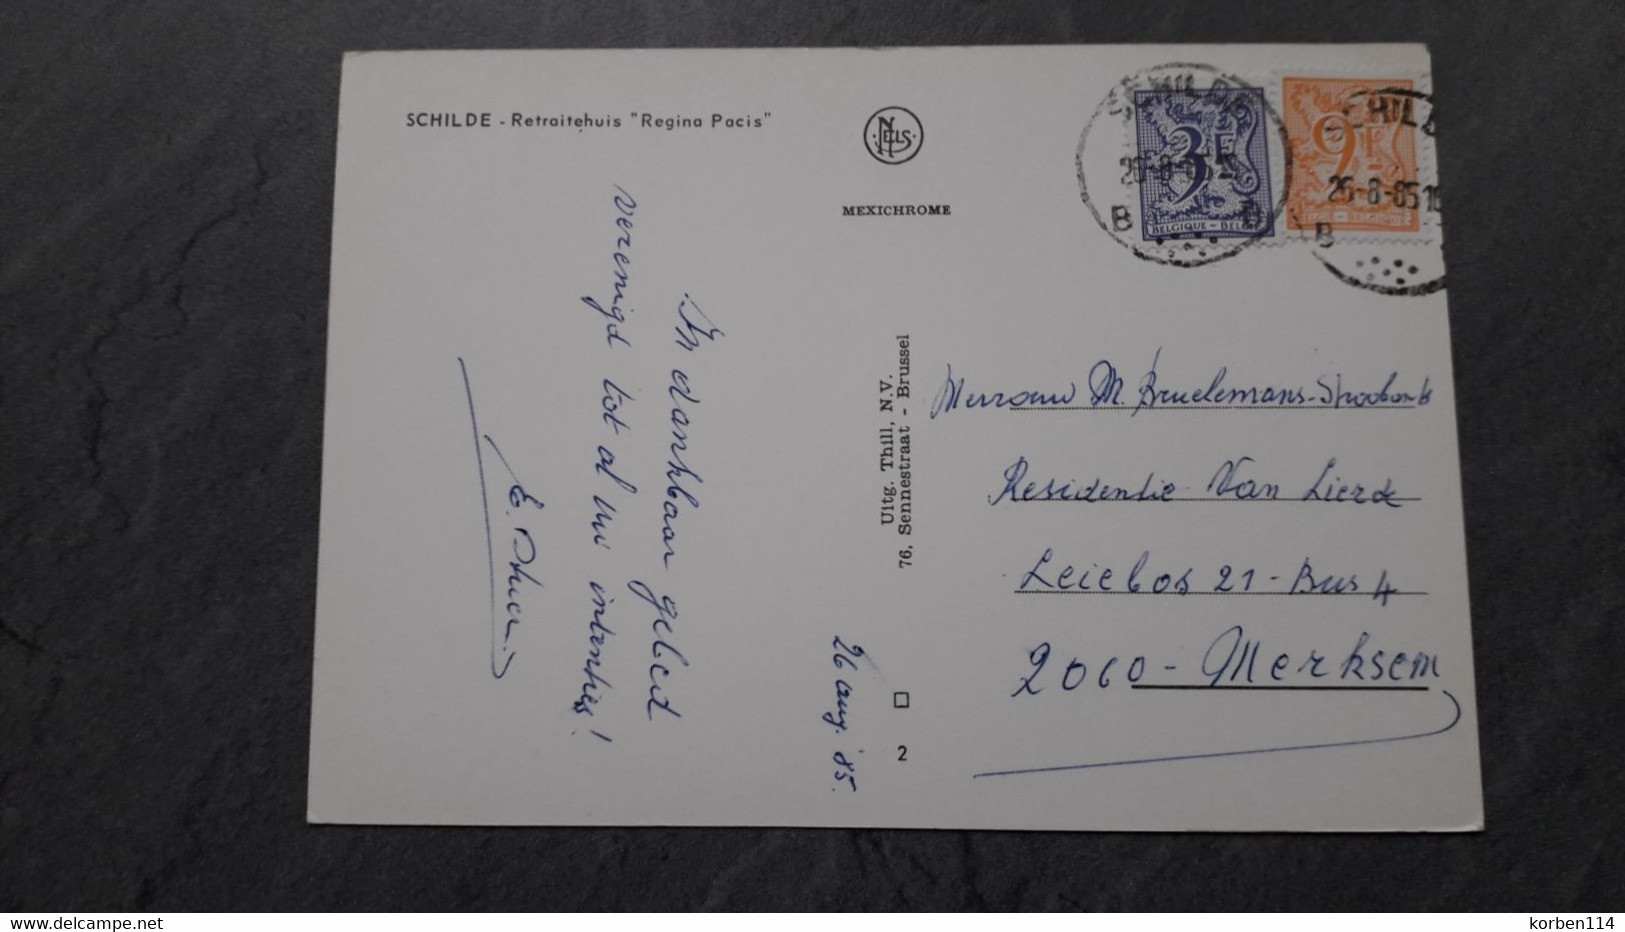 SCHILDE - Retraitehuis "Regina Pacis"
NELS
MEXICHROME
SCHILDE
26-8-85
B D
3F
BELGIQUE - BELGIË
SCHILD
26-8-85 16
B
9F
BELGIË - BELGIQUE
In dankbaar gebed
verenigd tot al uw intenties!
E.
26 aug. '85.
Uitg. Thill, N.V.
76, Sennestraat - Brussel
2
Mevrouw M. Bruelemans-
Residentie Van Lierde
Leiebos 21 - Bus 4
2060 - Merksem
www.delcampe.net
korben114